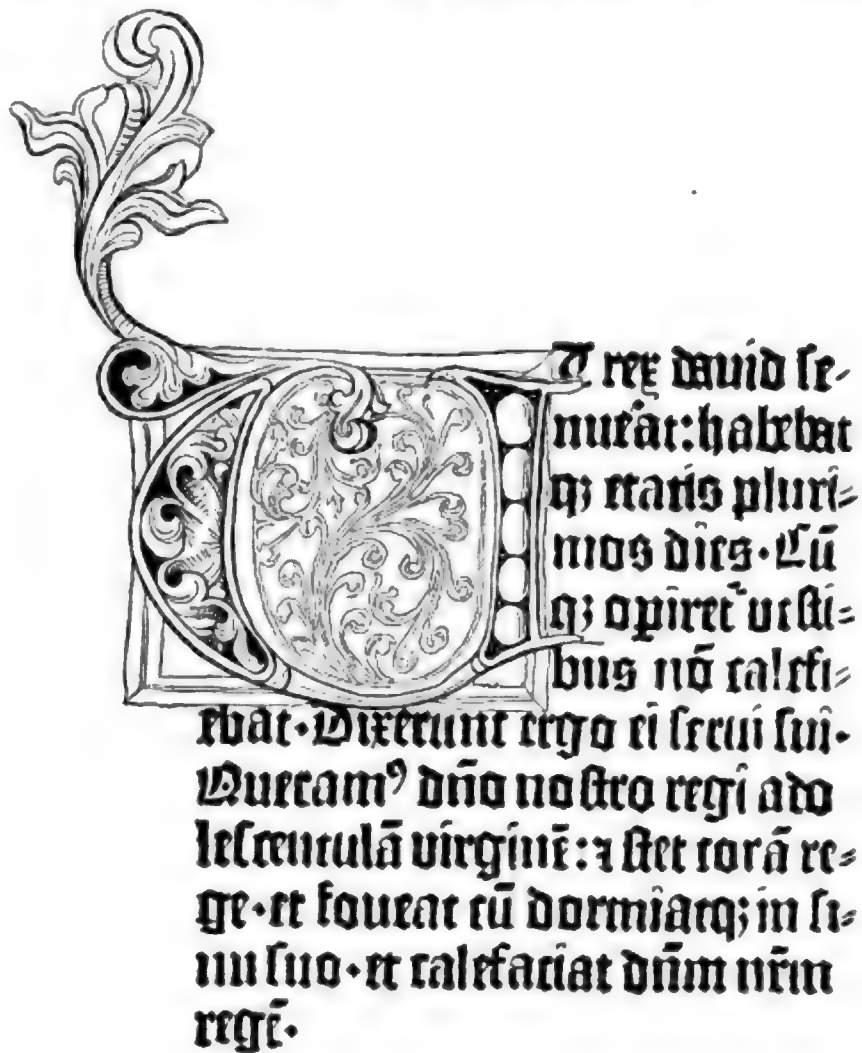 ET rex dauid ſe⸗
nuẽat: habebat
qȝ etatis pluri⸗
mos dies. Cũ
qȝ opiret᷑ veſti⸗
bus nõ calefi⸗
ebat. Dixerunt ergo ei ſerui ſui.
Queramꝰ dño noſtro regi ado
leſcentulã virginẽ: ⁊ ſtet corã re⸗
ge. et foueat eũ dormiatqȝ in ſi⸗
nu ſuo. et calefaciat dñm nr̃m
regẽ.